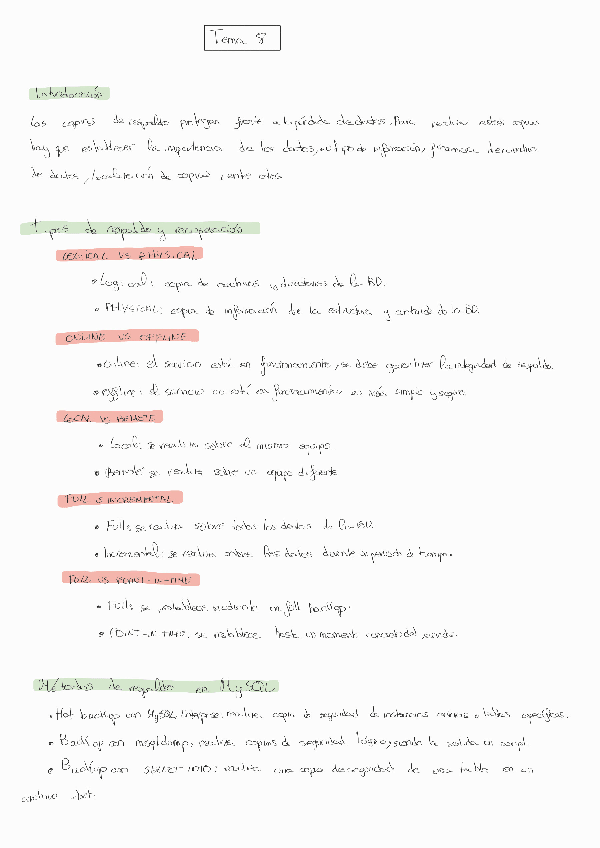 Tema 8
Introducción
Las copias de respaldo protegen frente a la pérdida de datos. Para realizar estas copias
hay que establecer la importancia de los datos, el tipo de información, frecuencia
de datos, localización de copias, entre otras.
Tipos de respaldo y recuperación
LOGICAL VS PHYSICAL
• Logical: copia de archivos y directorios de la BD.
• PHYSICAL: copia de información de la estructura y contenido de la BD.
ONLINE VS OFFLINE
• Online: el servicio está en funcionamiento, se debe garantizar la integridad de respaldo.
• Offline: El servicio no está en funcionamiento es más simple y seguro.
LOCAL VS REMOTE
• Local: se realiza sobre el mismo equipo
• Remote: se realiza sobre un equipo diferente
FULL VS INCREMENTAL
• Full: se realiza sobre todos los datos de la BD.
• Incremental: se realiza sobre los datos durante un periodo de tiempo.
FULL VS POINT-IN-TIME
• Full: se restablece mediante un full backup.
• POINT-IN-TIME: se restablece hasta un momento
Métodos de respaldo en MySQL
• Hot backup con MySQL Enterprise: realiza copia de seguridad de instancias o tablas específicas.
• Backup con mysqldump: realiza copias de seguridad lógica, siendo la salida un script
• Backup con SELECT INTO: realiza una copia de seguridad de una tabla en un
archivo .txt.